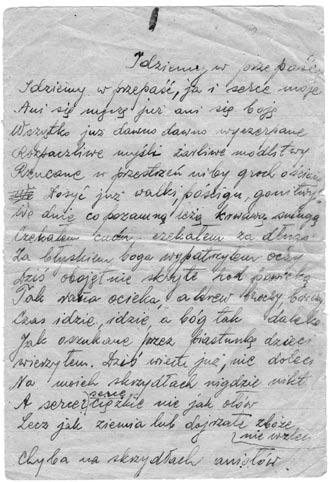 Idziemy w przepaść
Idziemy w przepaść, ja i serce moje
Ani się męczę już ani się boję
Wszystko już dawno dawno wyczerpane
Rozpaczliwe myśli żarliwe modlitwy
Rzucone w przestrzeń niby groch o ścianę
Dosyć już walki, pościgu, gonitwy
We dnie co poza mną leżą krwawą smugą
Czekałem cudu, czekałem za długo
Za blaskiem boga wypatrzyłem oczy
Dziś obojętnie skryte pod powieką
Tak rana ocieka, a krew broczy
Czas idzie, idzie, a bóg tak daleko
Jak oszukane przez piastunkę dzieci
wierzyłem. Dziś wiem już, nie doleci
Na moich skrzydłach nigdzie nikt
A serce
serce ciężkie nie jak ołów
Lecz jak ziemia lub dojrzałe zboże
nie
chyba na skrzydłach aniołów.